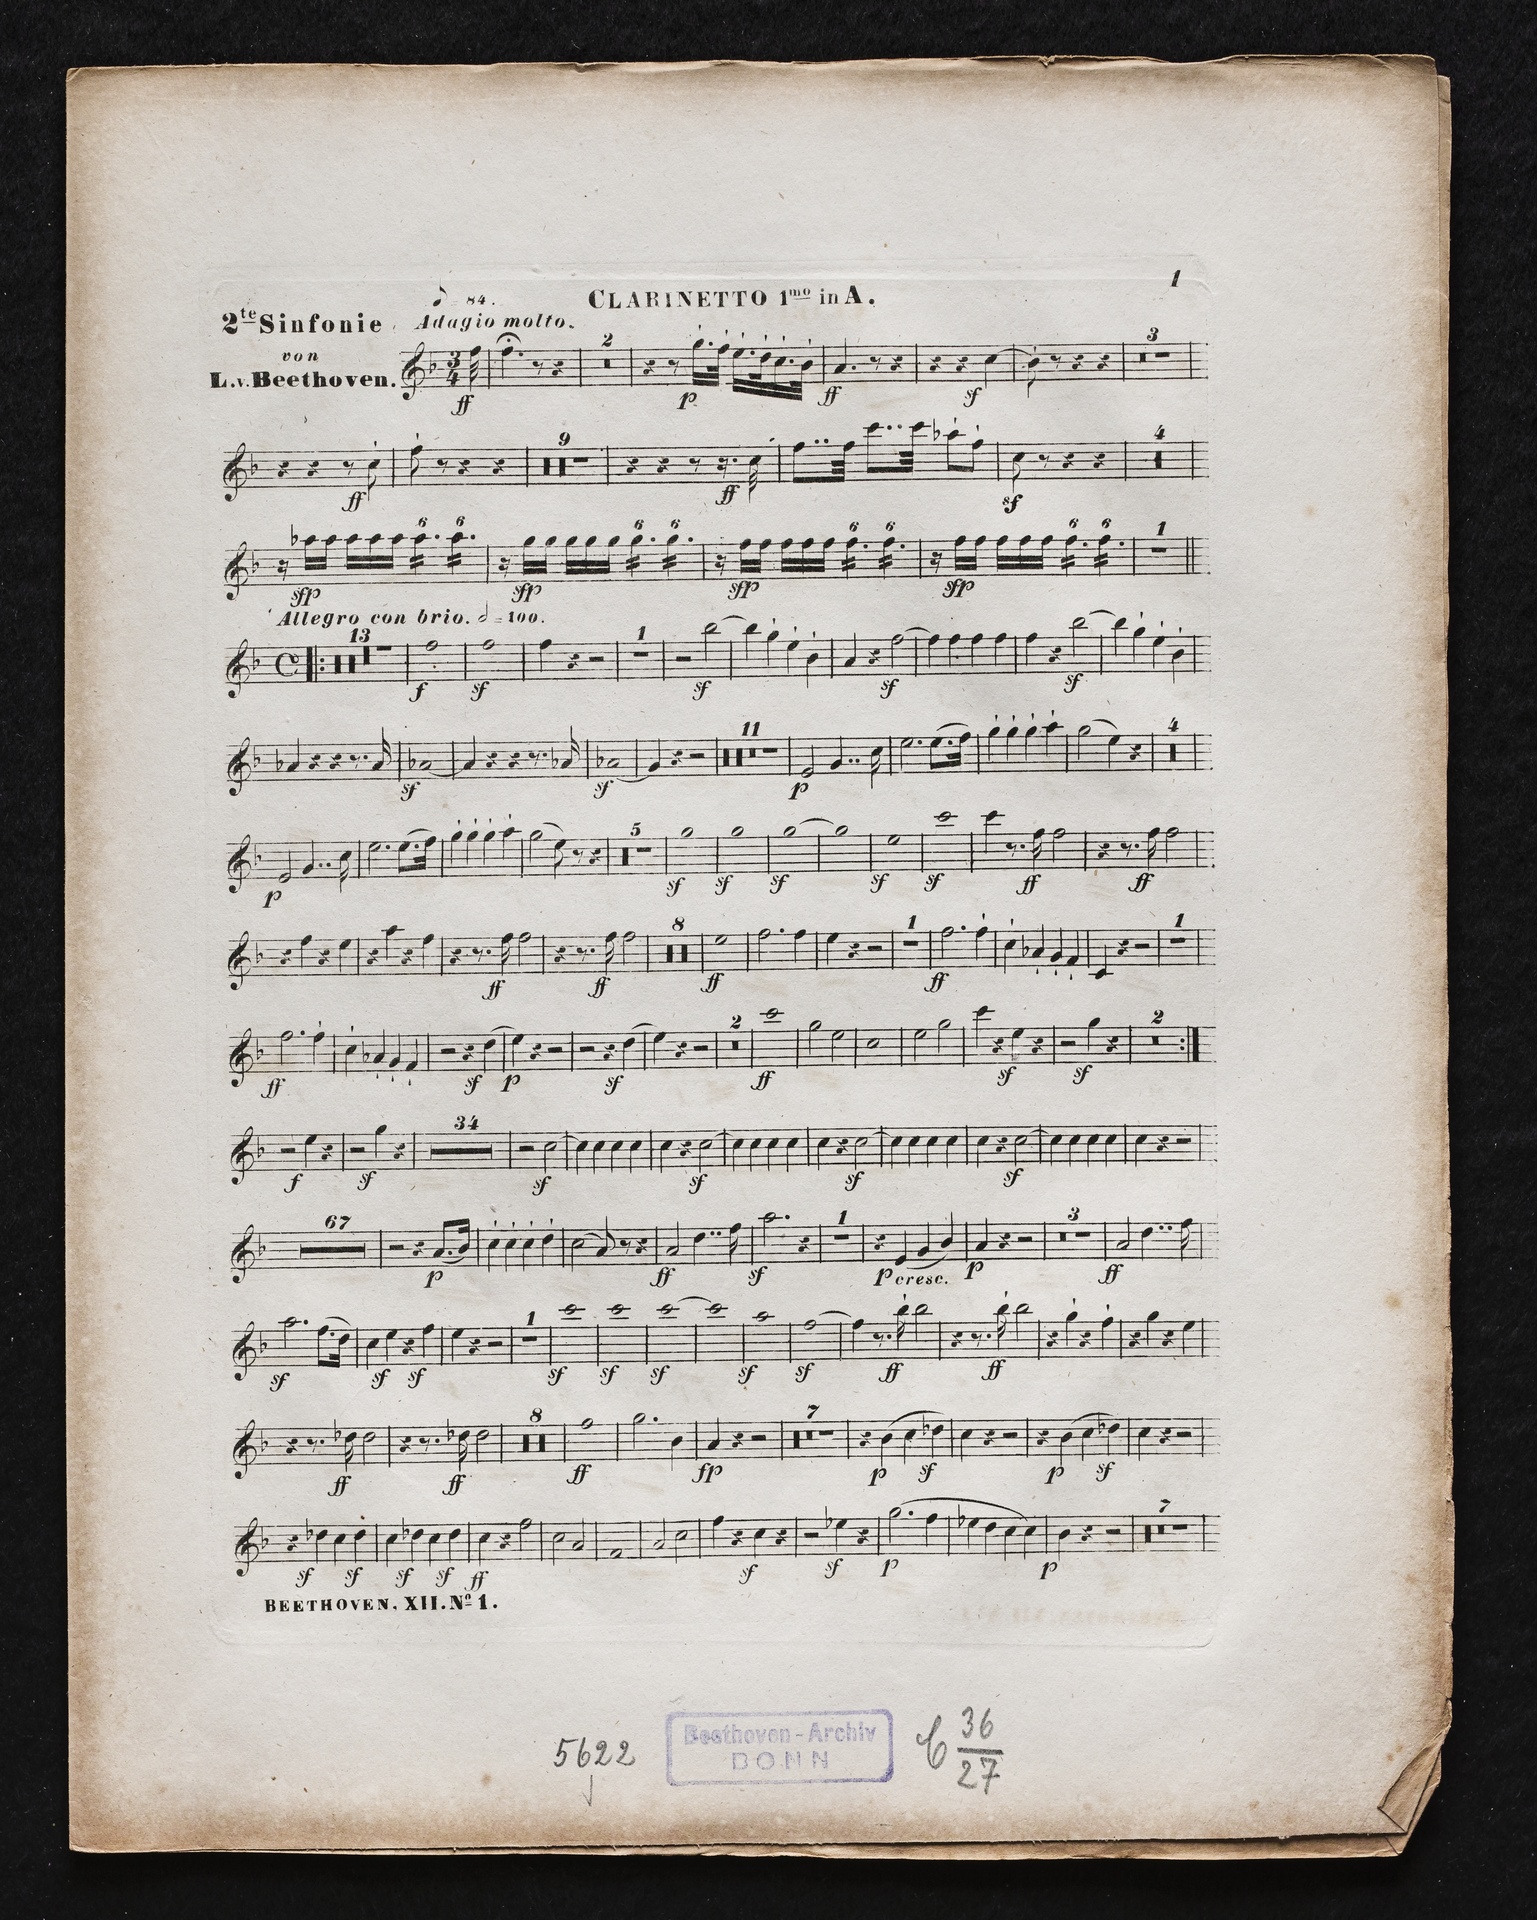 1
CLARINETTO 1mo in A.
♪ = 84.
2te Sinfonie
Adagio molto.
von
L.v. Beethoven.
2 3
ff p ff sf
9 4
ff ff sf
6 6 6 6 6 6 6 6
sfp sfp sfp sfp
Allegro con brio. 𝅗𝅥 = 100.
13 1
f sf sf sf sf
11 4
sf sf p
5
p sf sf sf sf sf ff ff
8 1 1
ff ff ff ff
2 2
ff sf p sf ff sf sf
34
f sf sf sf sf sf
67 1 3
p ff sf p cresc. p ff
1
sf sf sf sf sf sf sf sf ff ff
8 7
ff ff ff fp p sf p sf
7
sf sf sf sf ff sf sf p p
BEETHOVEN. XII. No 1.
5622
Beethoven-Archiv
BONN
C 36
27